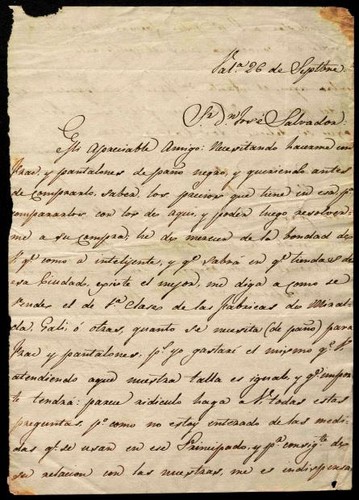 Val.ª 26 de Septbre
Sr. Dn. José Salvador
Mi Apreciable Amigo: Necesitando hacerme un
Frac, y pantalones de paño negro, y queriendo antes
de comprarlo, saber los precios que tiene en esa pª
compararlos con los de aqui, y poder luego resolver
me a su compra, he de merecer de la bondad de
V. qe como a inteligente, y qe sabrá en qe tiendas de
esa Ciudad, existe el mejor, me diga a como se
vende el de 1ª Clase de las fabricas de
Galí ó otras, quanto se nesecita (de paño) para
Frac y pantalones, ps yo gastaré el mismo qe V.
atendiendo aque nuestra talla es igual, y qe impor
te tendra: parece ridiculo haga a V. todas estas
preguntas, po como no estoy enterado de las medi
das qe se usan en ese Principado, y pª consigte de
su relacion con las nuestras, me es indispensa